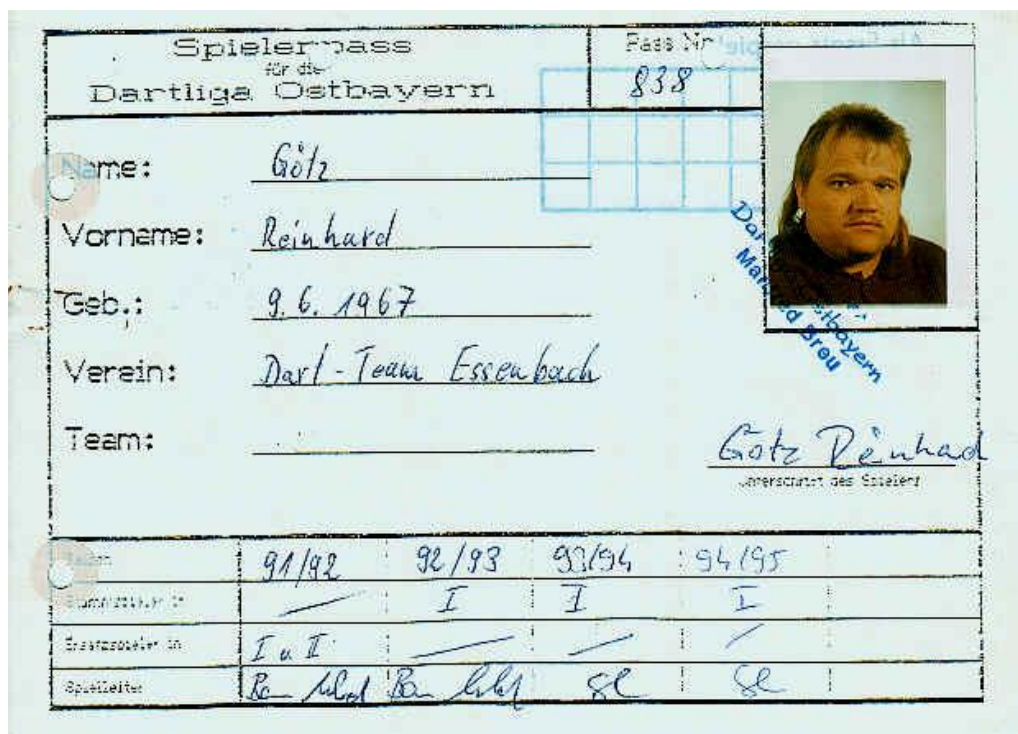 Spielerpass
für die
Dartliga Ostbayern
Pass Nr
838
Name: Götz
Vorname: Reinhard
Geb.: 9.6.1967
Verein: Dart-Team Essenbach
Team:
Ostbayern
Manfred Breu
Götz Reinhard
Unterschrift des Spielers
91/92 92/93 93/94 94/95
Stammspieler in / I I I
Ersatzspieler in I u II / / /
Spielleiter